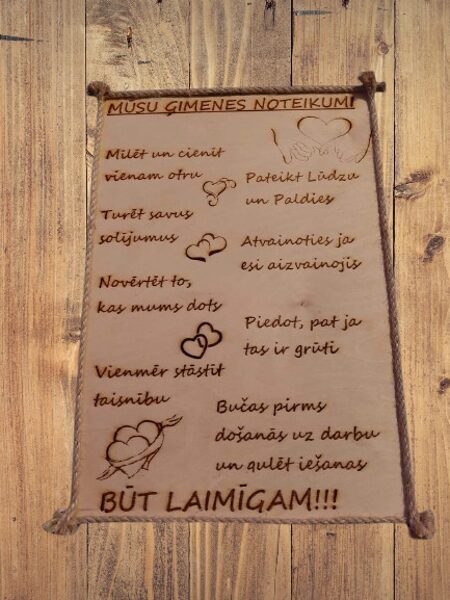 MŪSU ĢIMENES NOTEIKUMI
Milēt un cienīt
vienam otru
Pateikt Lūdzu
un Paldies
Turēt savus
solījumus
Atvainoties ja
esi aizvainojis
Novērtēt to,
kas mums dots
Piedot, pat ja
tas ir grūti
Vienmēr stāstīt
taisnību
Bučas pirms
došanās uz darbu
un gulēt iešanas
BŪT LAIMĪGAM!!!